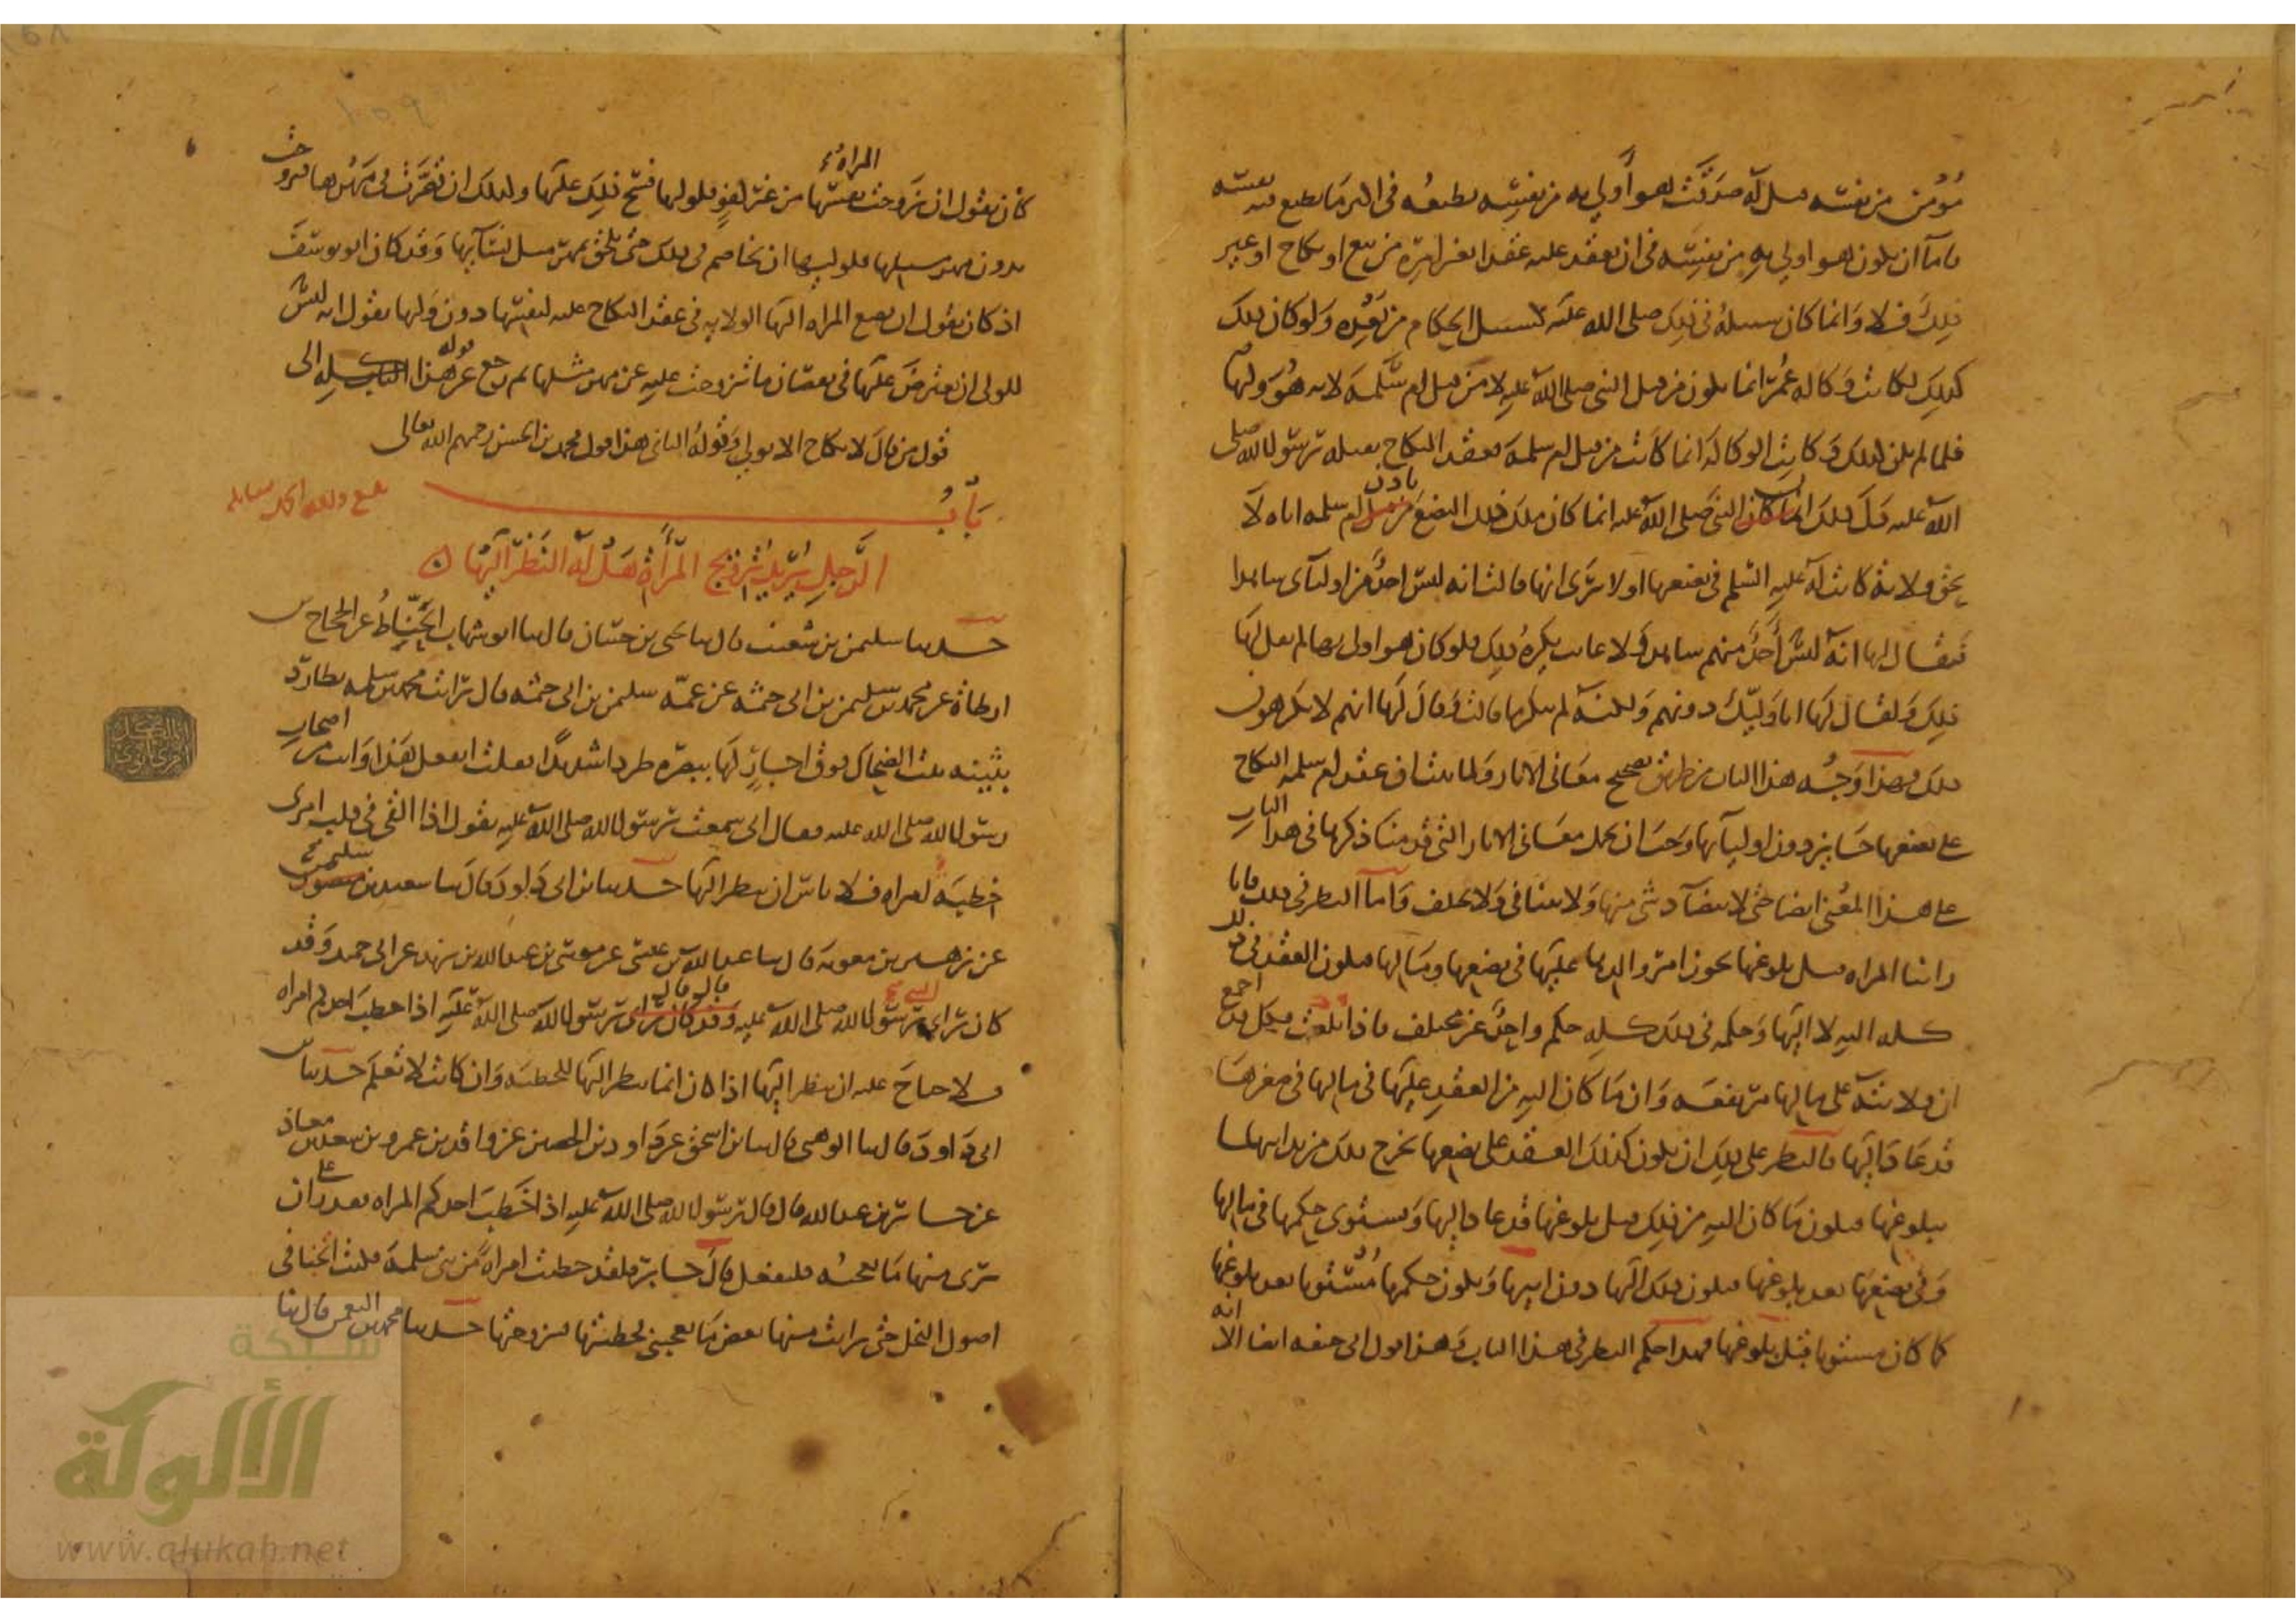 مؤمن من نفسه قيل له صدقت هو أولى به من نفسه يطيعه في اكثر مما يطيع فيه نفسه
فاما ان يكون هو اولى به من نفسه في ان يعقد عليه عقدا بغير امره من بيع او نكاح او غير
ذلك فلا وانما كان سبيله في ذلك صلى الله عليه كسبيل الحكام من بعده ولو كان ذلك
كذلك لكانت وكاله عمر انما تكون من قبل النبي صلى الله عليه لا من قبل ام سلمة لانه هو وليها
فلما لم يكن ذلك وكانت الوكالة انما كانت من قبل ام سلمة فعقد النكاح بقبله رسول الله صلى
الله عليه دل ذلك ان النبي صلى الله عليه انما كان ملك ذلك البضع بتمليك ام سلمه اياه لا
بحق ولاية كانت له عليه السلم في بضعها اولا ترى انها قالت انه ليس احد من اوليائي شاهدا
فقال لها انه ليس أحد منهم شاهد ولا غائب يكره ذلك فلو كان هو اولى بها لم يقل لها
ذلك ولقال لها انا وليك دونهم ولكنه لم ينكر ما قالت وقال لها انهم لا يكرهون
ذلك فهذا وجه هذا الباب من طريق تصحيح معاني الاثار ولما ثبت ان عقد ام سلمه النكاح
على بضعها جائز دون اوليائها وجب ان يحمل معاني الاثار التي قدمنا ذكرها في هذا الباب
على هذا المعنى ايضا حتى لا يتضاد شي منها ولا يتنافى ولا يختلف وأما النظر في ذلك فانا
راينا المراه قبل بلوغها يجوز امر والدها عليها في بضعها ومالها فيكون العقد في ذلك
كله اليه لا اليها وحكمه في ذلك كله حكم واحد غير مختلف فاذا بلغت فكل قد اجمع
ان ولايته على مالها مرتفعه وان ما كان اليه من العقد عليها في مالها في صغرها
قد عاد اليها فالنظر على ذلك ان يكون كذلك العقد على بضعها يخرج ذلك من يد ابيها
ببلوغها فيكون ما كان اليه من ذلك قبل بلوغها قد عاد اليها ويستوي حكمها في مالها
وفي بضعها بعد بلوغها فيكون ذلك اليها دون ابيها ويكون حكمها مستويا بعد بلوغها
كما كان مستويا قبل بلوغها فهذا حكم النظر في هذا الباب وهذا قول ابي حنيفه ايضا الا انه
كان يقول ان زوجت المراة نفسها من غير كفو فلوليها فسخ ذلك عليها وكذلك ان قصرت في مهرها فتزوجت
بدون مهر مثلها فلوليها ان يخاصم في ذلك حتى يلحق بمهر مثل نسائها وقد كان ابو يوسف
اذ كان يقول ان بضع المراه اليها الولايه في عقد النكاح عليه لنفسها دون وليها يقول انه ليس
للولي ان يعترض عليها في نقصان ما تزوجت عليه عن مهر مثلها ثم رجع عن قوله هذا كله الى
قول من قال لا نكاح الا بولي وقوله الثاني هذا قول محمد بن الحسن رحمهم الله تعالى
باب
الرجل يريد تزويج المرأة هل له النظر اليها
حدثنا سليمن بن شعيب قال ثنا يحيى بن حسان قال ثنا ابو شهاب الحناط عن الحجاج بن
ارطاة عن محمد بن سليمن بن ابي حثمه عن عمه سليمن بن ابي حثمه قال رايت محمد بن سلمه يطارد
بثينه بنت الضحاك فوق اجار لها ببصره طردا شديدا فقلت اتفعل هذا وانت من اصحاب
رسول الله صلى الله عليه فقال اني سمعت رسول الله صلى الله عليه يقول اذا القي في قلب امرئ
خطبة امراه فلا باس ان ينظر اليها حدثنا بن ابي داود قال ثنا سعيد بن سليمن
عن زهير بن معويه قال ثنا عبد الله بن عيسى عن موسى بن عبد الله بن يزيد عن ابي حميد وقد
كان راى النبي صلى الله عليه قال قال رسول الله صلى الله عليه اذا خطب احدكم امراه
فلا جناح عليه ان ينظر اليها اذا كان انما ينظر اليها للخطبه وان كانت لا تعلم حدثنا بن
ابي داود قال ثنا الوهبي قال ثنا بن اسحق عن داود بن الحصين عن واقد بن عمرو بن سعد بن معاذ
عن جابر بن عبد الله قال قال رسول الله صلى الله عليه اذا خطب احدكم المراه فقدر على ان
يرى منها ما يعجبه فليفعل قال جابر فلقد خطبت امراة من بني سلمة فكنت اتخبأ في
اصول النخل حتى رايت منها بعض ما يعجبني فخطبتها فتزوجتها حدثنا محمد بن النعمن قال ثنا
شبكة
الألوكة
www.alukah.net